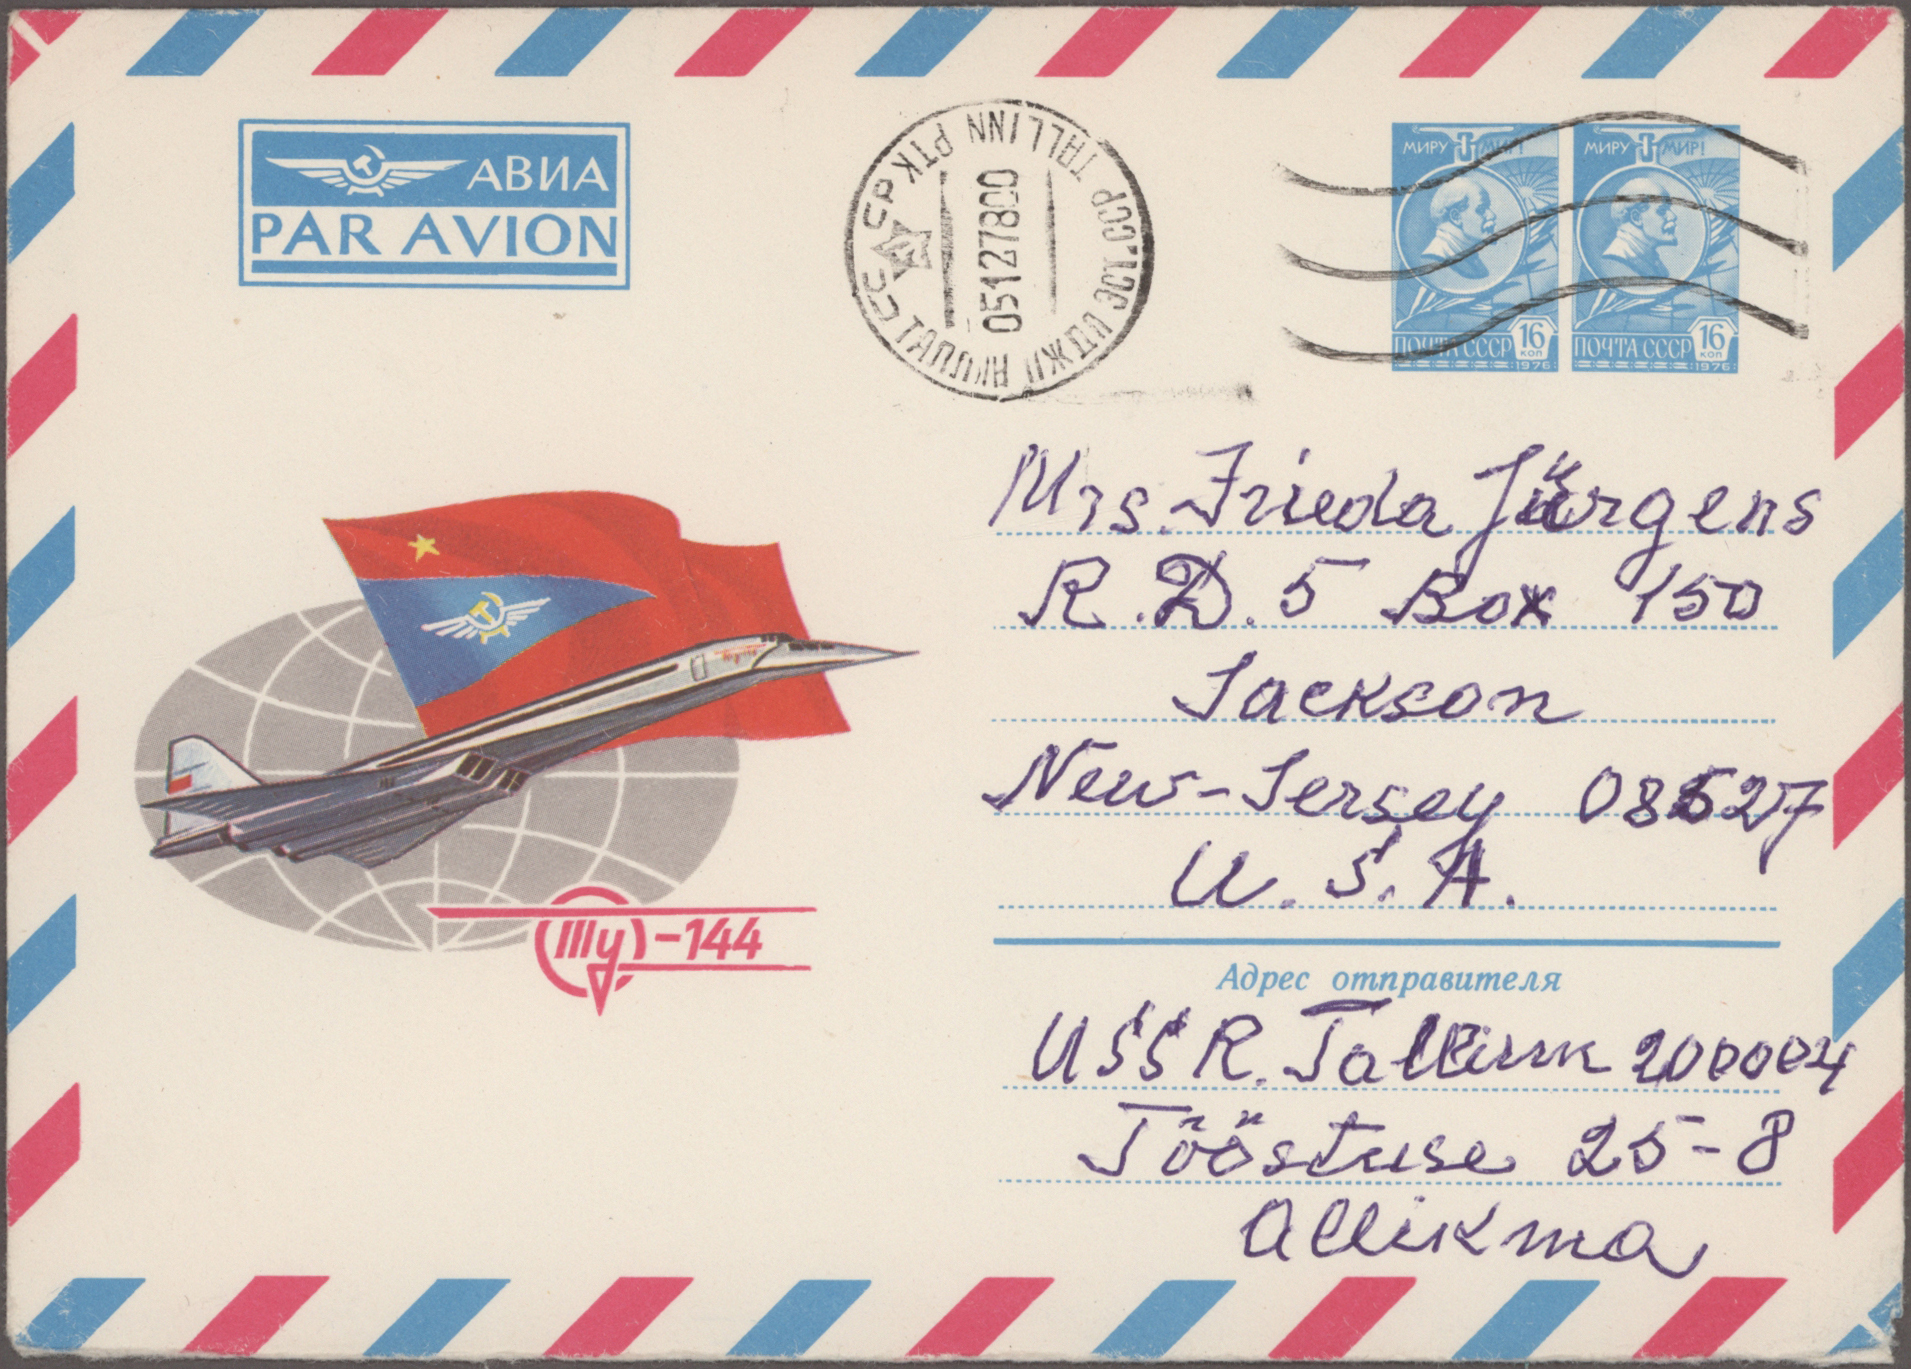 АВИА
PAR AVION
TALLINN PTK
ЭСТ.ССР
ТАЛЛИН ПЖДП
0512 7800
МИРУ МИР!
16
КОП
ПОЧТА СССР
1976
МИРУ МИР!
16
КОП
ПОЧТА СССР
1976
Mrs. Frieda Jürgens
R.D. 5 Box 150
Jackson
New-Jersey 08527
U.S.A.
Ту-144
Адрес отправителя
USSR. Tallinn 200004
Tööstuse 25-8
Allikma